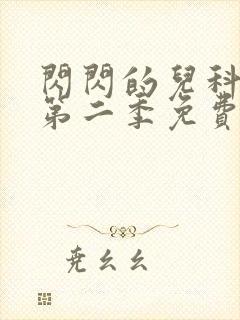 閃閃的兒科
第二季免費
堯幺幺